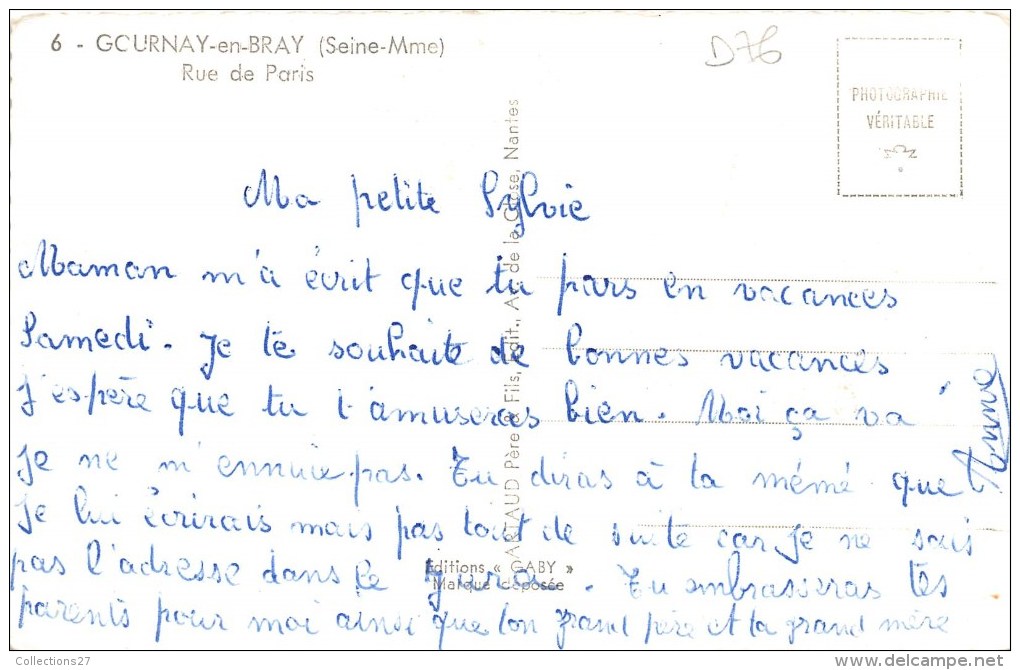 6 - GOURNAY-en-BRAY (Seine-Mme)
Rue de Paris
D76
PHOTOGRAPHIE
VÉRITABLE
Ma petite Sylvie
Maman m'a écrit que tu pars en vacances
Samedi. Je te souhaite de bonnes vacances
J'espère que tu t'amuseras bien. Moi ça va
je ne m'ennuie pas. Tu diras à ta mémé que
je lui écrirais mais pas tout de suite car je ne sais
pas l'adresse dans le Jura. Tu embrasseras tes
parents pour moi ainsi que ton grand père et ta grand mère
Anne
ARTAUD Père & Fils, Édit., Av. de la Close, Nantes
Editions « GABY »
Marque déposée
Collections27
www.delcampe.net